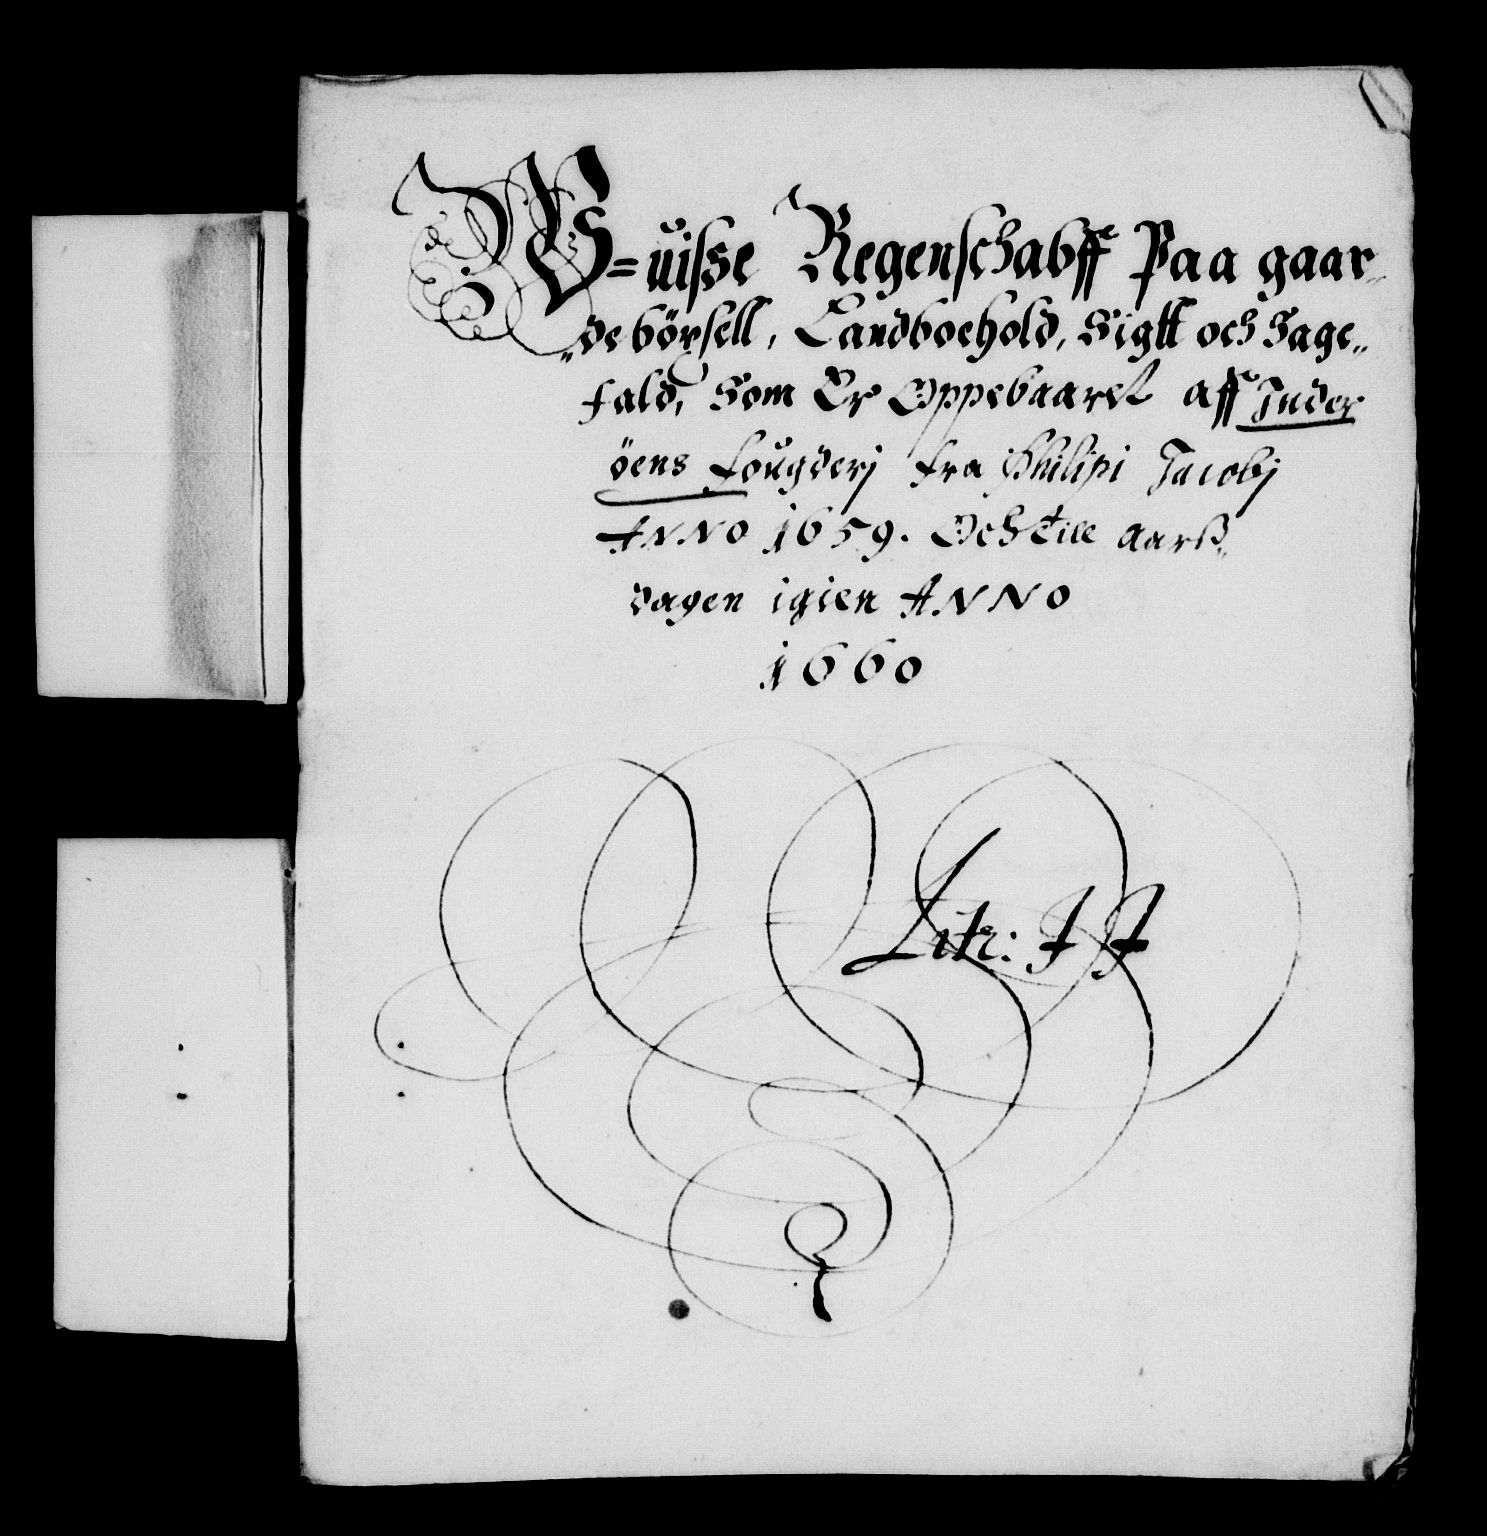 W=uisse Regenschabff Paa gaar-
debörsell, Landboehold, Sigtt och Sage-
fald, Som Er Oppebaaret aff Inder
öens fougderj fra Philipi Jacobj
ANNO 1659. Och till aarß
dagen igien ANNO
1660
Litr: J J